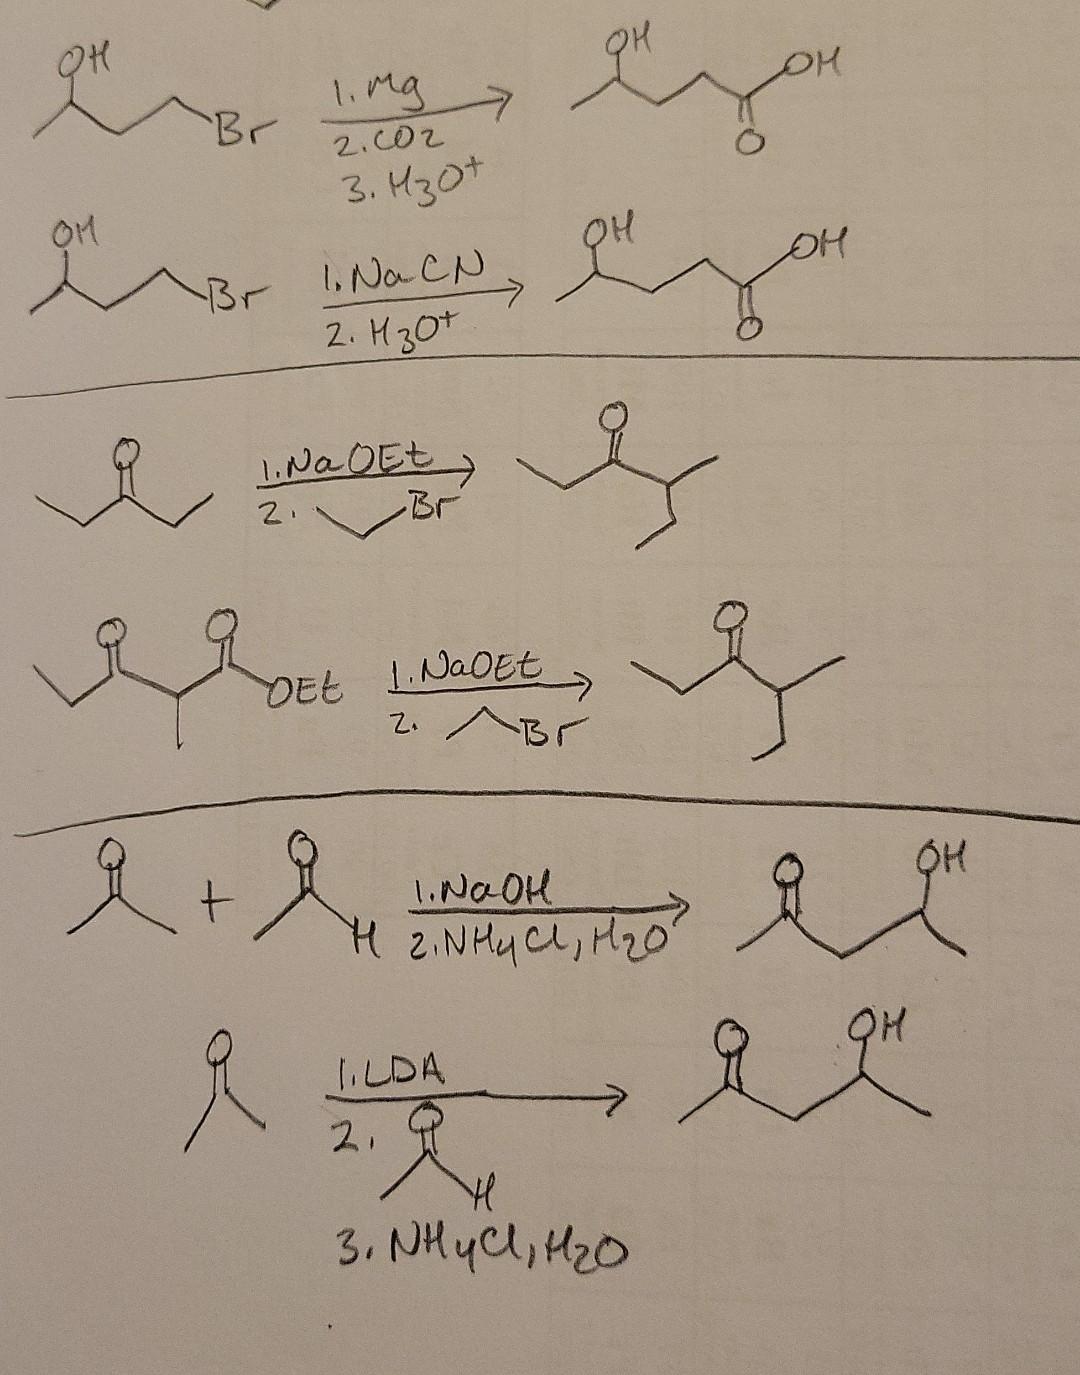 OH
Br
1. Mg
2. CO2
3. H3O+
OH
OH
O
OH
Br
1. NaCN
2. H3O+
OH
OH
O
O
1. NaOEt
2. Br
O
O
O
OEt
1. NaOEt
2. Br
O
O
+
O
H
1. NaOH
2. NH4Cl, H2O
O
OH
O
1. LDA
2. O
H
3. NH4Cl, H2O
O
OH